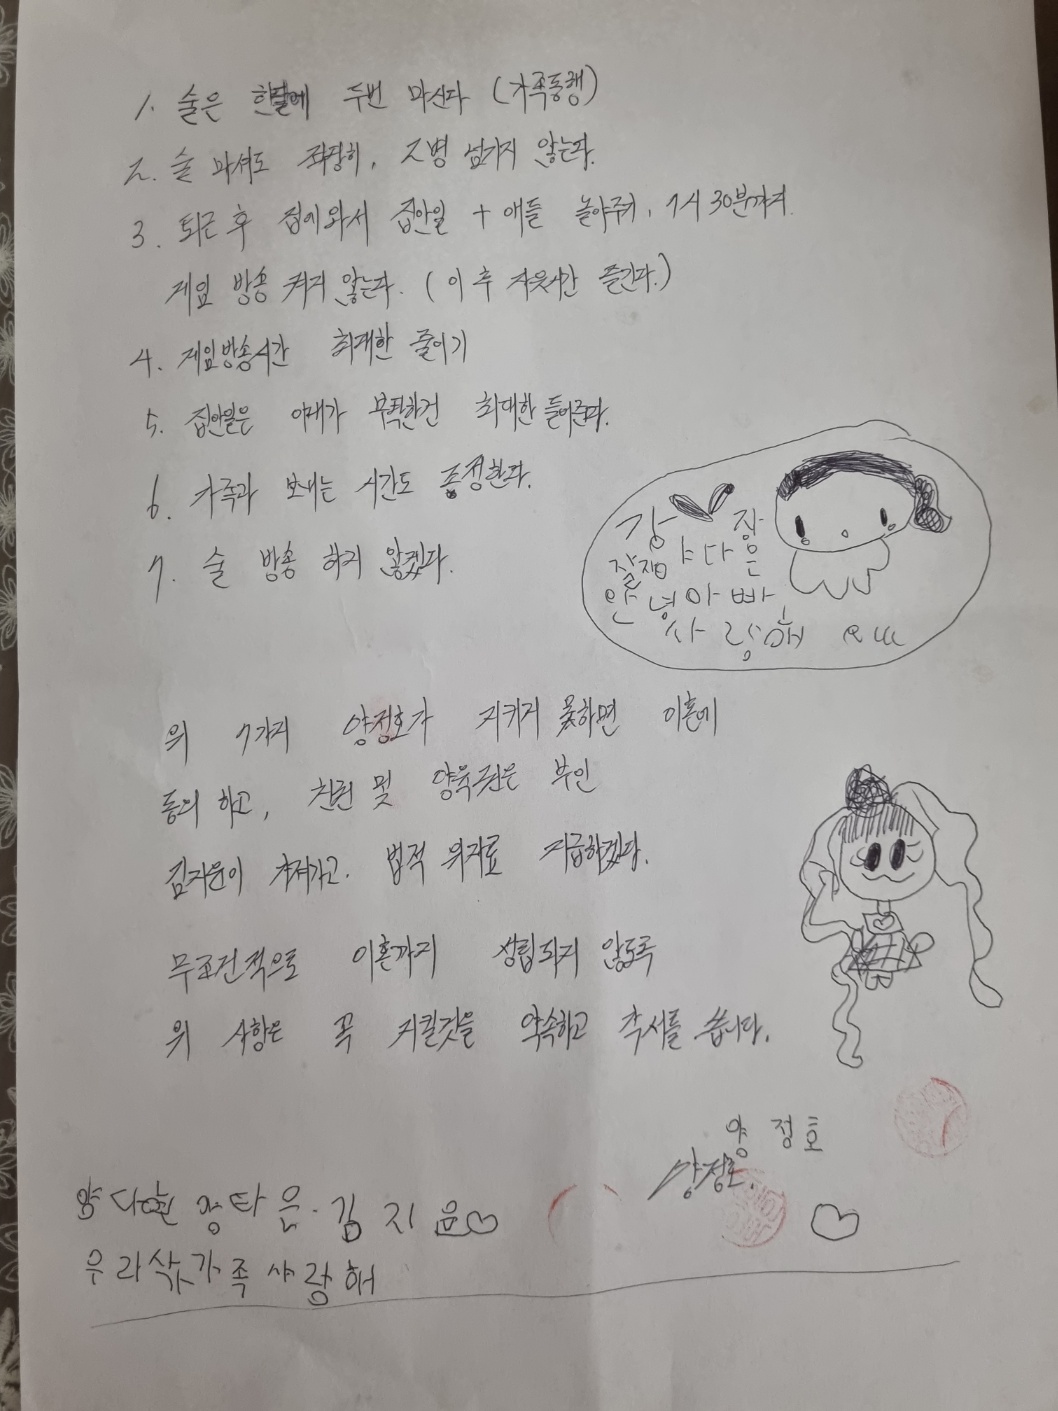 1. 술은 한달에 두번 마신다 (가족동행)
2. 술 마셔도 적당히, 2병 넘기지 않는다.
3. 퇴근 후 집에와서 집안일 + 애들 놀아주기, 9시 30분까지
게임 방송 켜지 않는다. (이 후 자유시간 즐긴다.)
4. 게임방송시간 최대한 줄이기
5. 집안일은 아내가 부탁한건 최대한 들어준다.
6. 가족과 보내는 시간도 존중한다.
7. 술 방송 하지 않겠다.
안녕 아빠
사랑해
위 7가지 양정호가 지키지 못하면 이혼에
동의 하고, 친권 및 양육권은 부인
김지윤이 가져가고. 법적 위자료 지급하겠다.
무조건적으로 이혼까지 성립되지 않도록
위 사항은 꼭 지킬것을 약속하고 각서를 씁니다.
양 정 호
양정호.
김 지 윤♡ ♡
가족 사랑해